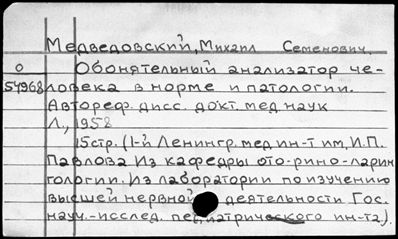 Медведовский, Михаил Семенович.
О Обонятельный анализатор че-
54968 ловека в норме и патологии.
Автореф. дисс. докт. мед наук
Л., 1958
15 стр. (1-й Ленингр. мед ин-т им. И.П.
Павлова Из кафедры ото-рино-ларин
гологии. Из лаборатории по изучению
высшей нервной деятельности Гос.
науч.-исслед. педиатрического ин-та).